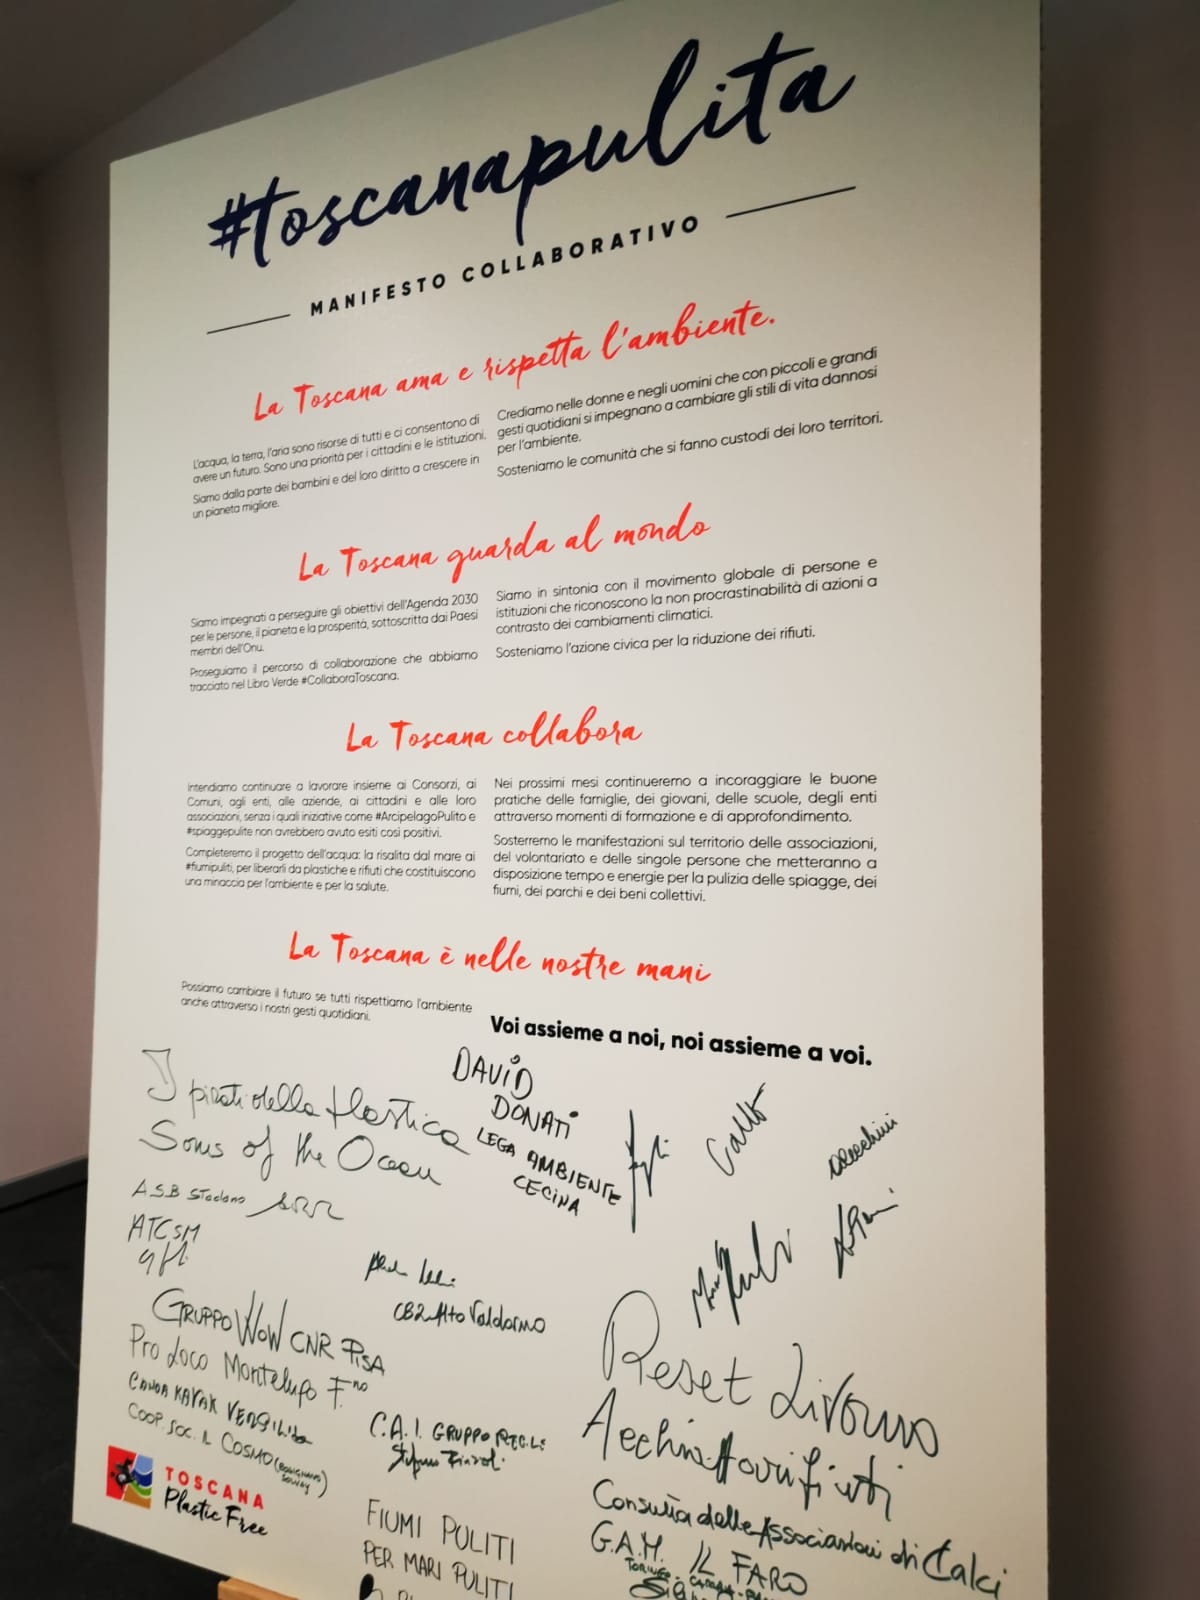 #toscanapulita
MANIFESTO COLLABORATIVO
La Toscana ama e rispetta l'ambiente.
L'acqua, la terra, l'aria sono risorse di tutti e ci consentono di
avere un futuro. Sono una priorità per i cittadini e le istituzioni.
Siamo dalla parte dei bambini e del loro diritto a crescere in
un pianeta migliore.
Crediamo nelle donne e negli uomini che con piccoli e grandi
gesti quotidiani si impegnano a cambiare gli stili di vita dannosi
per l'ambiente.
Sosteniamo le comunità che si fanno custodi dei loro territori.
La Toscana guarda al mondo
Siamo impegnati a perseguire gli obiettivi dell'Agenda 2030
per le persone, il pianeta e la prosperità, sottoscritta dai Paesi
membri dell'Onu.
Proseguiamo il percorso di collaborazione che abbiamo
tracciato nel Libro Verde #CollaboraToscana.
Siamo in sintonia con il movimento globale di persone e
istituzioni che riconoscono la non procrastinabilità di azioni a
contrasto dei cambiamenti climatici.
Sosteniamo l'azione civica per la riduzione dei rifiuti.
La Toscana collabora
Intendiamo continuare a lavorare insieme ai Consorzi, ai
Comuni, agli enti, alle aziende, ai cittadini e alle loro
associazioni, senza i quali iniziative come #ArcipelagoPulito e
#spiaggepulite non avrebbero avuto esiti così positivi.
Completeremo il progetto dell'acqua: la risalita dal mare ai
#fiumipuliti, per liberarli da plastiche e rifiuti che costituiscono
una minaccia per l'ambiente e per la salute.
Nei prossimi mesi continueremo a incoraggiare le buone
pratiche delle famiglie, dei giovani, delle scuole, degli enti
attraverso momenti di formazione e di approfondimento.
Sosterremo le manifestazioni sul territorio delle associazioni,
del volontariato e delle singole persone che metteranno a
disposizione tempo e energie per la pulizia delle spiagge, dei
fiumi, dei parchi e dei beni collettivi.
La Toscana è nelle nostre mani
Possiamo cambiare il futuro se tutti rispettiamo l'ambiente
anche attraverso i nostri gesti quotidiani.
Voi assieme a noi, noi assieme a voi.
I pirati della plastica
Sons of the Ocean
DAVID
DONATI
LEGA AMBIENTE
CECINA
A.S.B
ATCSM
CB2 Alto Valdarno
GRUPPO WOW CNR PISA
Pro Loco Montelupo F.no
CANOA KAYAK
COOP. SOC. IL COSMO
C.A.I. GRUPPO
Reset Livorno
Acchiappa rifiuti
Consulta delle Associazioni di Calci
G.A.M. IL FARO
FIUMI PULITI
PER MARI PULITI
TOSCANA
Plastic Free